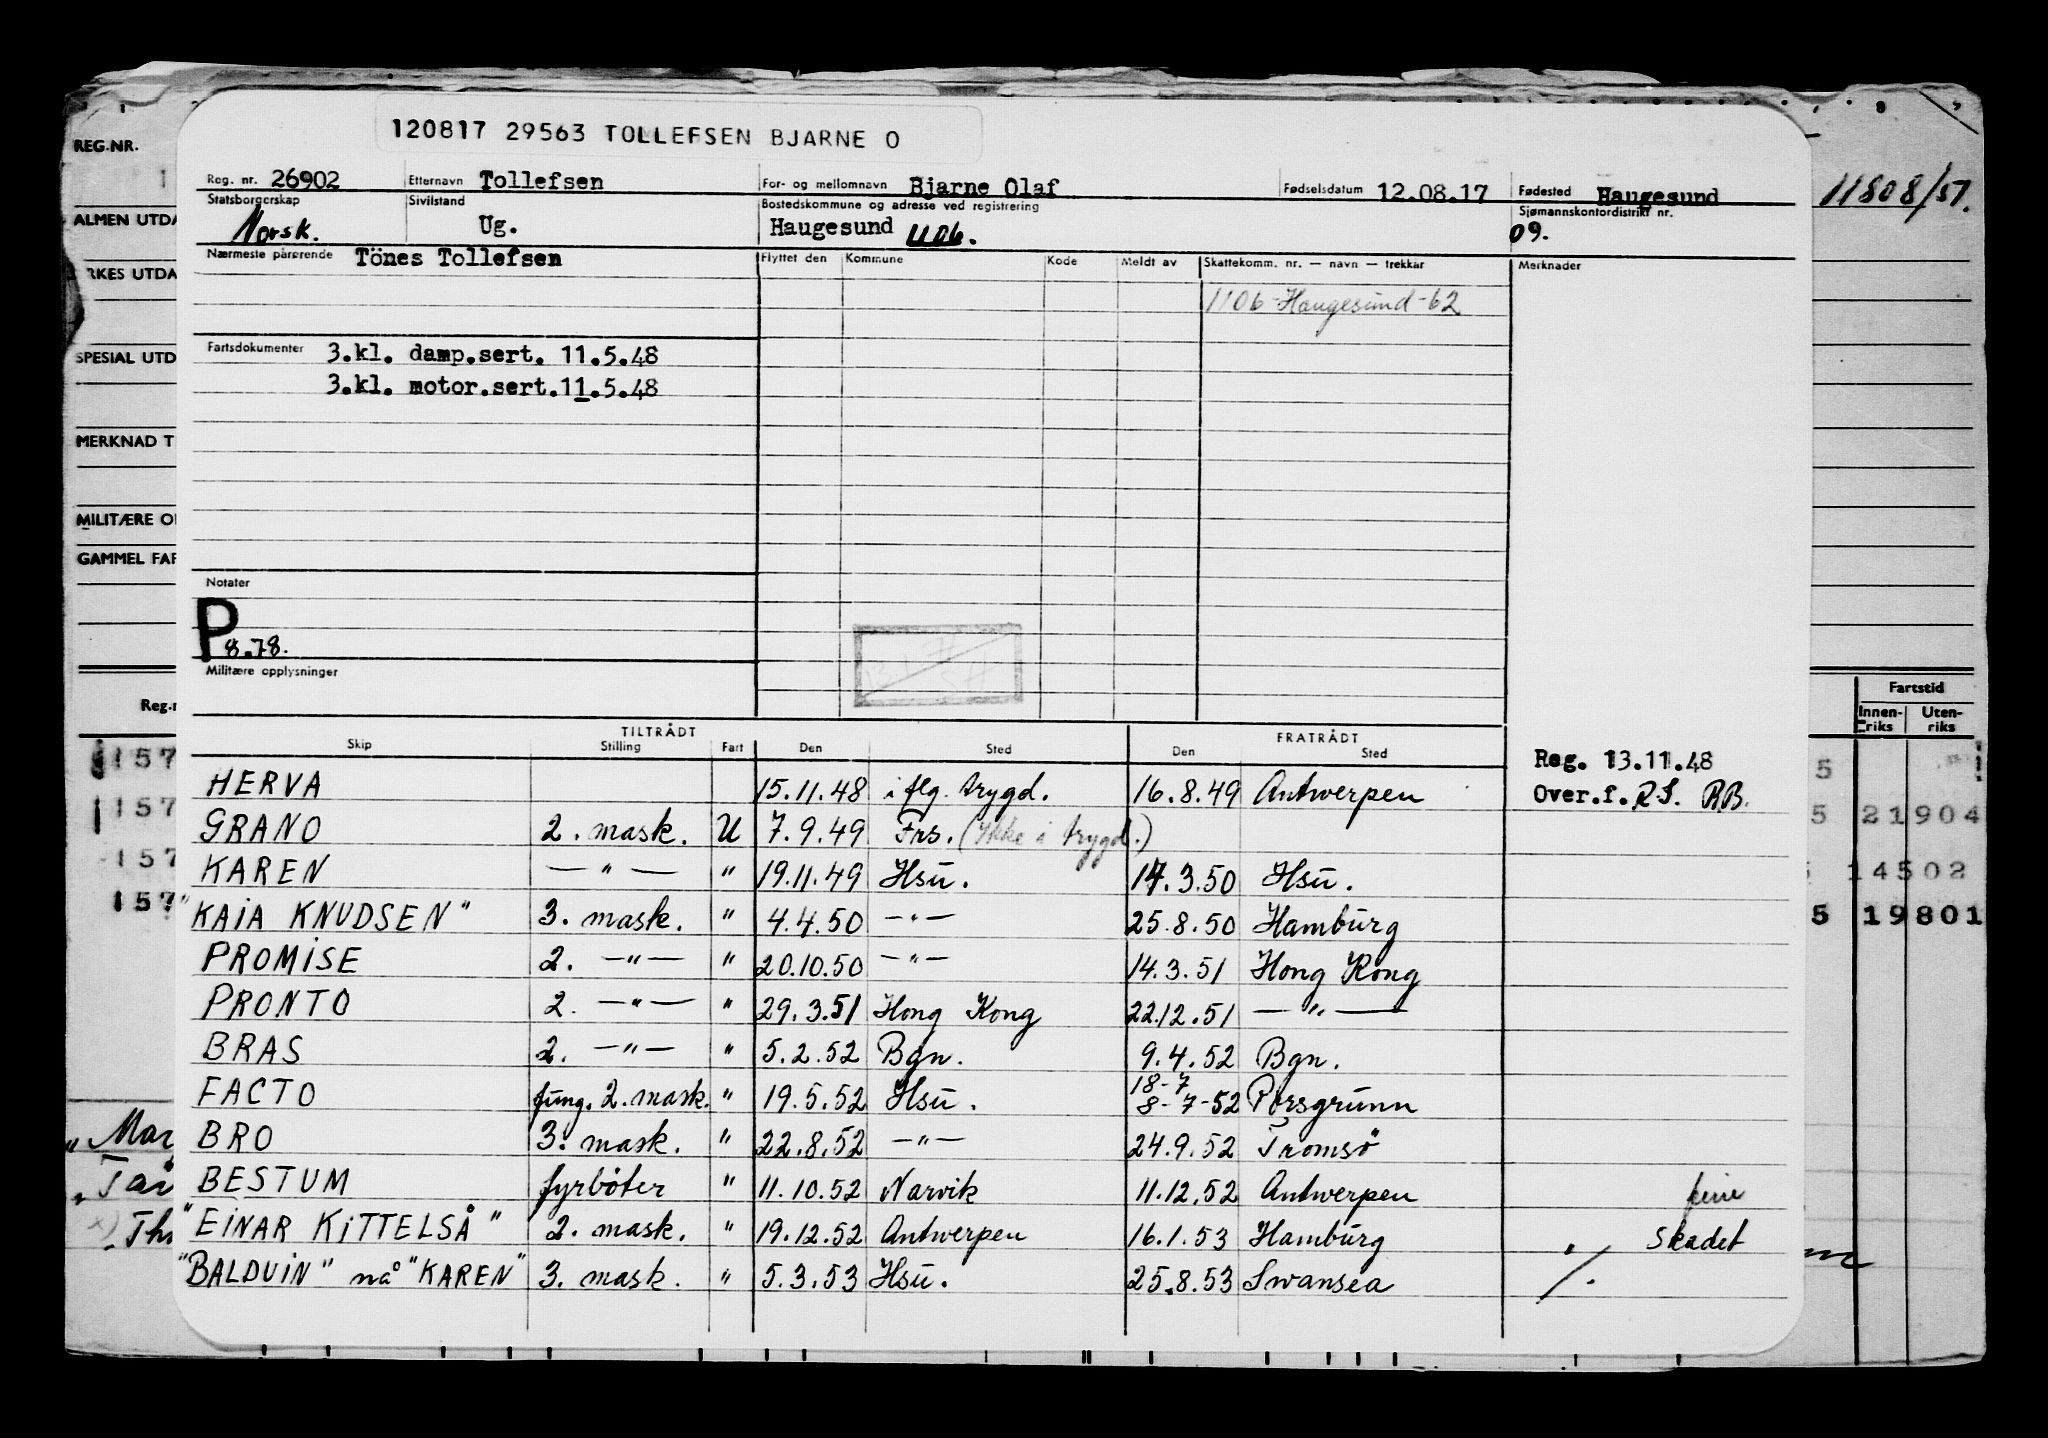 120817 29563 TOLLEFSEN BJARNE O
REG.NR.
Reg. nr. 26902 Etternavn Tollefsen For- og mellomnavn Bjarne Olaf Fødselsdatum 12.08.17 Fødested Haugesund
11808/51.
Statsborgerskap Norsk. Sivilstand Ug. Bostedskommune og adresse ved registrering Haugesund 1106. Sjømannskontordistrikt nr. 09.
ALMEN UTDA
Nærmeste pårørende Tönes Tollefsen Flyttet den Kommune Kode Meldt av Skattekomm. nr. — navn — trekkår Merknader
RKES UTDA
1106-Haugesund-62
Fartsdokumenter 3.kl. damp.sert. 11.5.48
SPESIAL UTD
3.kl. motor.sert.11.5.48
MERKNAD T
MILITÆRE O
GAMMEL FAR
Notater
P 8.78.
Militære opplysninger
Reg.n
Fartstid
Innen-riks Uten-riks
TILTRÅDT FRATRÅDT
Skip Stilling Fart Den Sted Den Sted
Reg. 13.11.48
157 5
HERVA 15.11.48 i flg. trygd. 16.8.49 Antwerpen Over.f. R.S. BB.
157 5 21904
GRANO 2. mask. U 7.9.49 Frs. (Ikke i trygd.)
157 14502
KAREN —"— " 19.11.49 Hsu. 17.3.50 Hsu.
157 5 19801
"KAIA KNUDSEN" 3. mask. " 4.4.50 —"— 25.8.50 Hamburg
PROMISE 2. —"— " 20.10.50 —"— 14.3.51 Hong Kong
PRONTO 2. —"— " 29.3.51 Hong Kong 22.12.51 —"—
BRAS 2. —"— " 5.2.52 Bgn. 9.4.52 Bgn.
18-7
FACTO fung. 2. mask. " 19.5.52 Hsu. 8-7-52 Porsgrunn
BRO 3. mask. " 22.8.52 —"— 24.9.52 Tromsö
BESTUM fyrböter " 11.10.52 Narvik 11.12.52 Antwerpen
"EINAR KITTELSÅ" 2. mask. " 19.12.52 Antwerpen 16.1.53 Hamburg Skadet
"BALDUIN" nå "KAREN" 3. mask. " 5.3.53 Hsu. 25.8.53 Swansea ./.